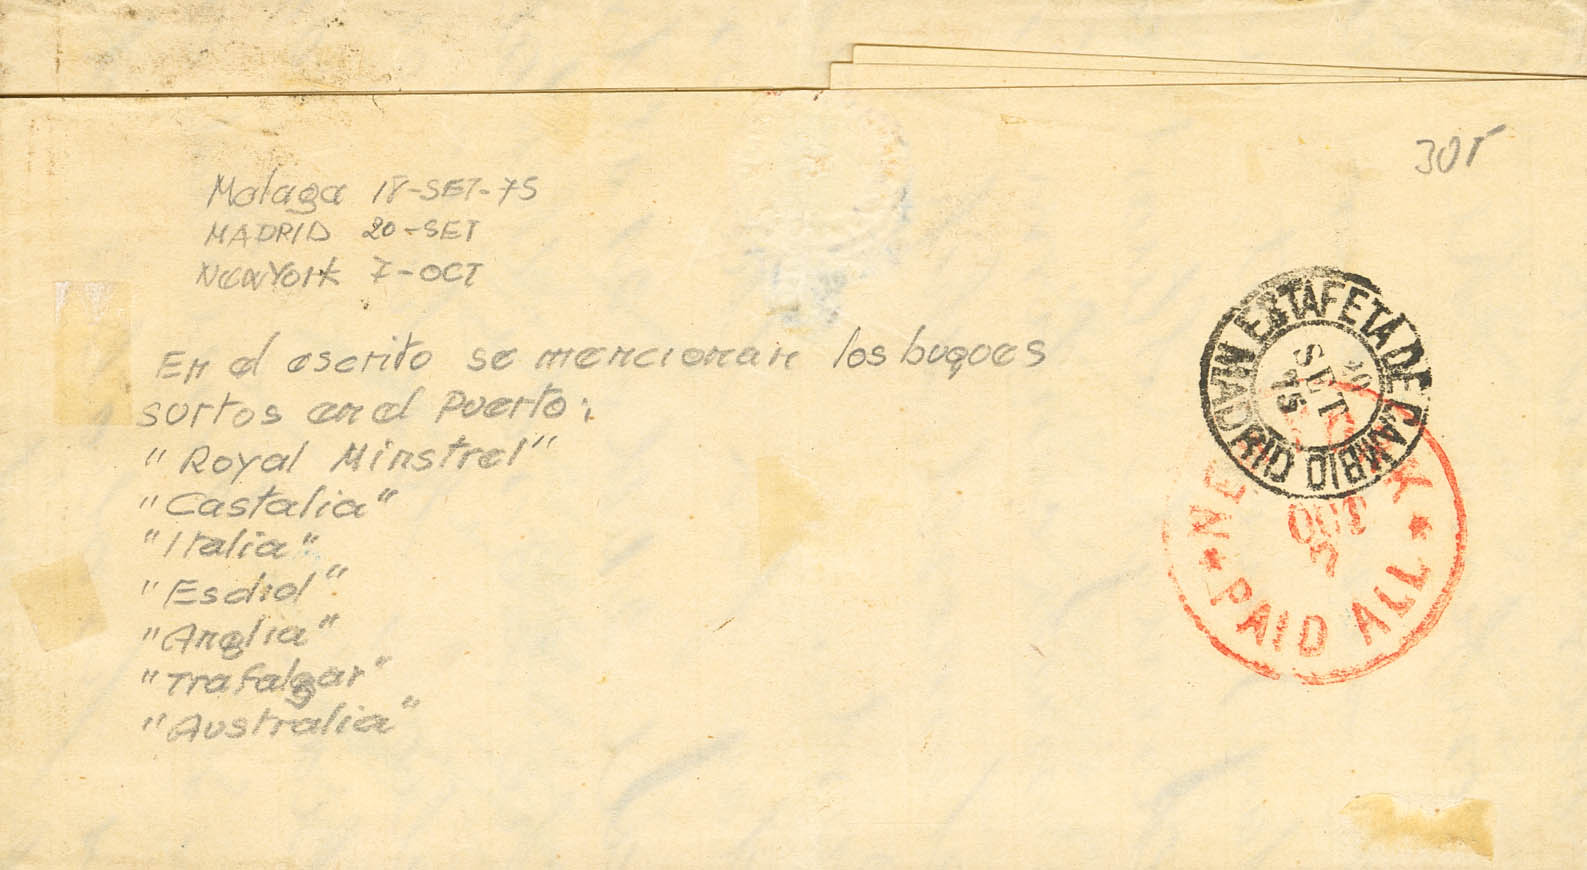 30r
Malaga 18-SET-75
MADRID 20-SET
New York 7-OCT
En el escrito se mencionan los buques
surtos en el Puerto:
"Royal Minstrel"
"Castalia"
"Italia"
"Esdid"
"Anglia"
"Trafalgar"
"Australia"
ESTAFETA DE CAMBIO
MADRID
20
SET
75
NEW YORK
OCT
7
PAID ALL